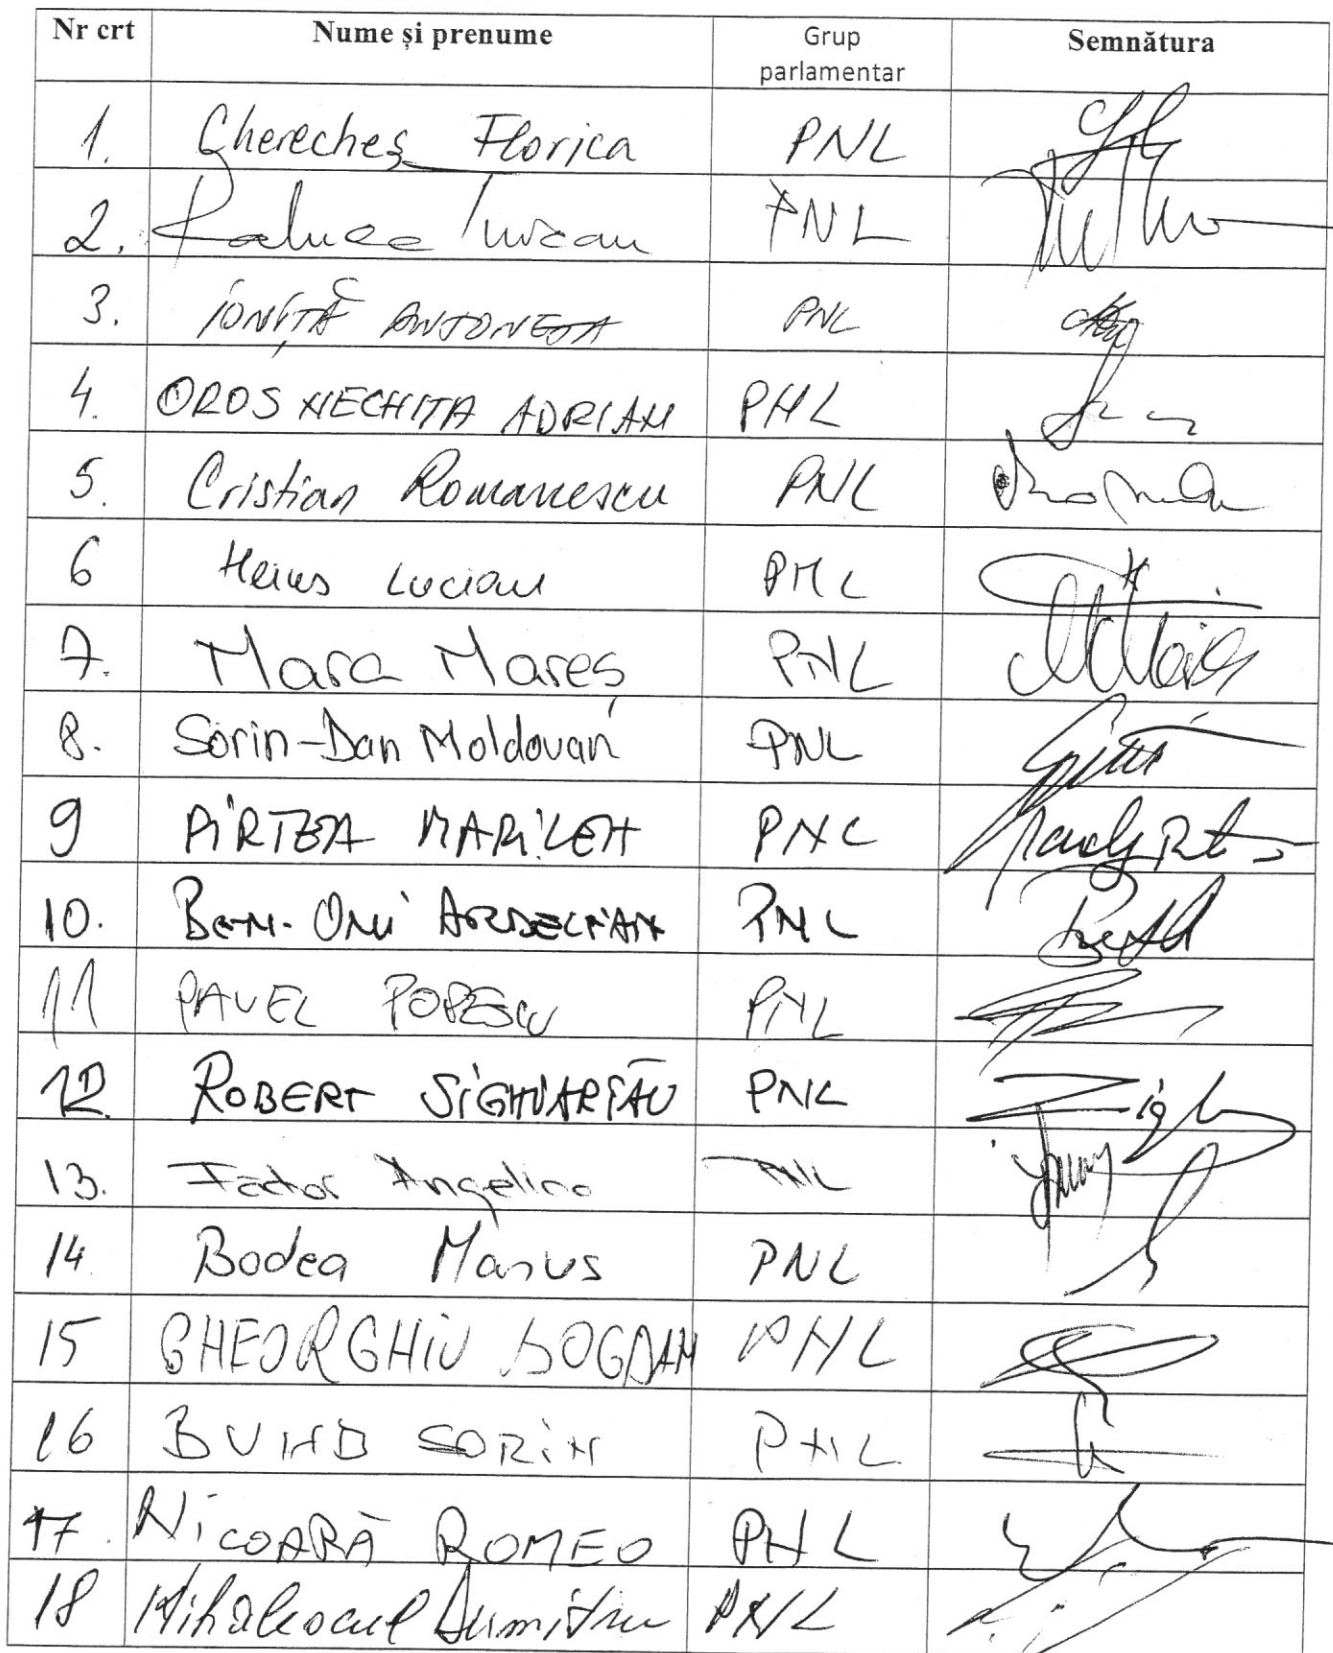 Nr crt Nume și prenume Grup parlamentar Semnătura
1. Cherecheș Florica PNL
2. Raluca Turcan PNL
3. IONIȚĂ ANTONETA PNL
4. OROS NECHITA ADRIAN PNL
5. Cristian Romanescu PNL
6 Heius Lucian PNL
7. Mara Mareș PNL
8. Sorin-Dan Moldovan PNL
9 PÎRTEA MARILEN PNL
10. BEN-ONI ARDELEAN PNL
11 PAVEL POPESCU PNL
12. ROBERT SIGHIARTĂU PNL
13. Fador Angelica PNL
14 Bodea Marius PNL
15 GHEORGHIU BOGDAN PNL
16 BUMB SORIN PNL
17. NICOARĂ ROMEO PNL
18 Mihalescul Dumitru PNL